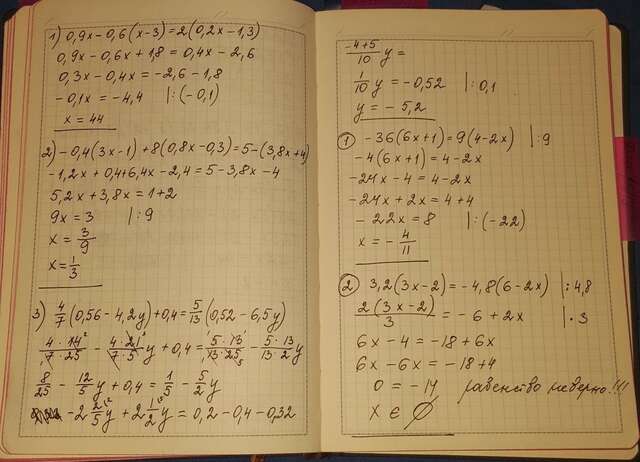 1) 0,9x-0,6(x-3)=2(0,2x-1,3)
0,9x-0,6x+1,8=0,4x-2,6
0,3x-0,4x=-2,6-1,8
-0,1x=-4,4 |:(-0,1)
x=44
2) -0,4(3x-1)+8(0,8x-0,3)=5-(3,8x+4)
-1,2x+0,4+6,4x-2,4=5-3,8x-4
5,2x+3,8x=1+2
9x=3 |:9
x=3/9
x=1/3
3) 4/7(0,56-4,2y)+0,4=5/13(0,52-6,5y)
4·14/7·25 - 4·21/7·5 y+0,4=5·13/13·25 - 5·13/13·2 y
8/25 - 12/5 y+0,4=1/5 - 5/2 y
-2 2/5 y+2 1/2 y=0,2-0,4-0,32
-4+5/10 y=
1/10 y=-0,52 |:0,1
y=-5,2
① -36(6x+1)=9(4-2x) |:9
-4(6x+1)=4-2x
-24x-4=4-2x
-24x+2x=4+4
-22x=8 |:(-22)
x=-4/11
② 3,2(3x-2)=-4,8(6-2x) |:4,8
2(3x-2)/3=-6+2x |·3
6x-4=-18+6x
6x-6x=-18+4
0=-14 равенство неверно!!!
x∈∅